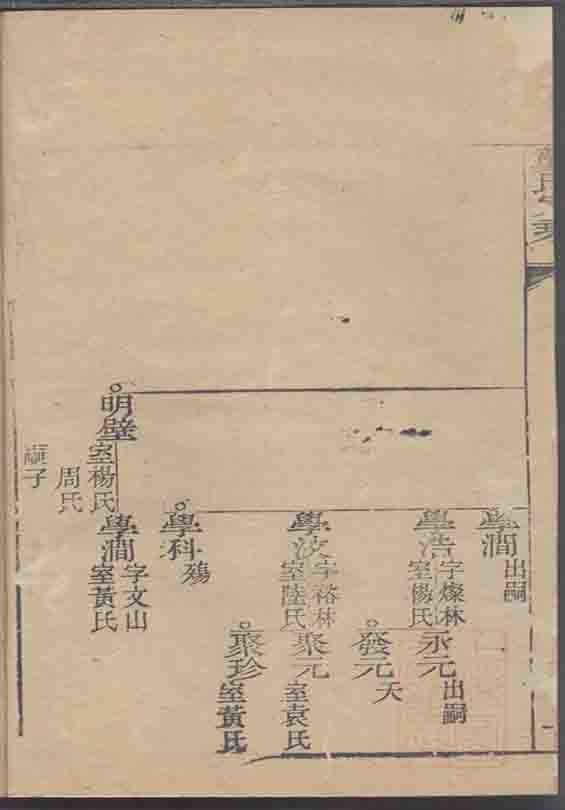 學澗
出嗣
學浩
字燦林
室楊氏
永元
出嗣
發元
夭
學汶
字裕林
室陸氏
聚元
室袁氏
聚珍
室黃氏
學科
殤
明璧
室楊氏
周氏
嗣子
學澗
字文山
室黃氏